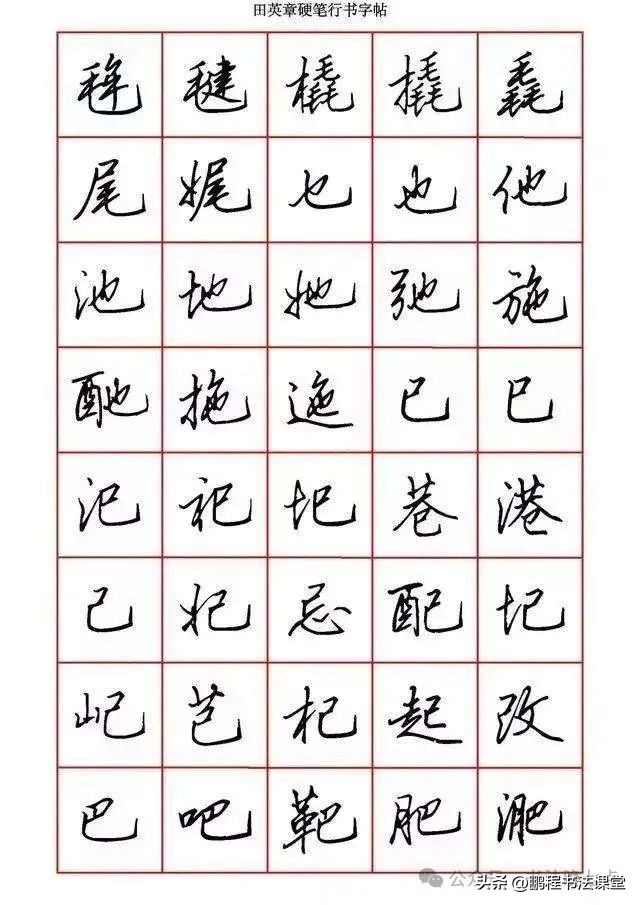 田英章硬笔行书字帖
毽 橇 撬 毳
尾 娓 乜 也 他
池 地 她 弛 施
酏 拖 迤 已 巳
汜 祀 圯 巷 港
己 妃 忌 配 圮
屺 芑 杞 起 改
巴 吧 靶 肥 淝
头条@鹏程书法课堂